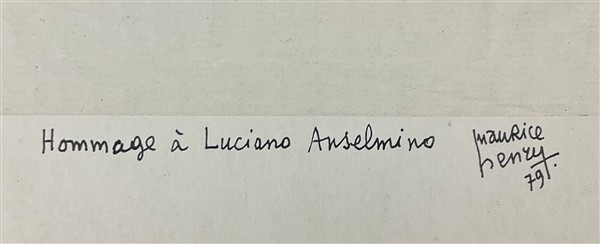 Hommage à Luciano Anselmino
maurice
henry
79.